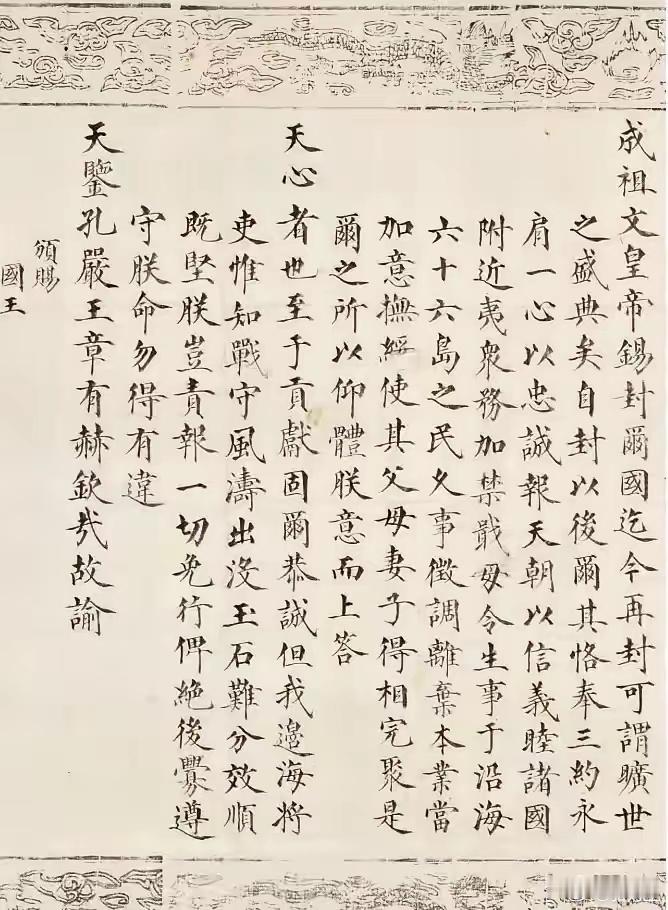 成祖文皇帝錫封爾國迄今再封可謂曠世
之盛典矣自封以後爾其恪奉三約永
肩一心以忠誠報天朝以信義睦諸國
附近夷衆務加禁戢毋令生事于沿海
六十六島之民久事徵調離棄本業當
加意撫綏使其父母妻子得相完聚是
爾之所以仰體朕意而上答
天心者也至于貢獻固爾恭誠但我邊海將
吏惟知戰守風濤出没玉石難分效順
既堅朕豈責報一切免行俾絶後釁遵
守朕命勿得有違
天鑒孔嚴王章有赫欽哉故諭
頒賜
國王